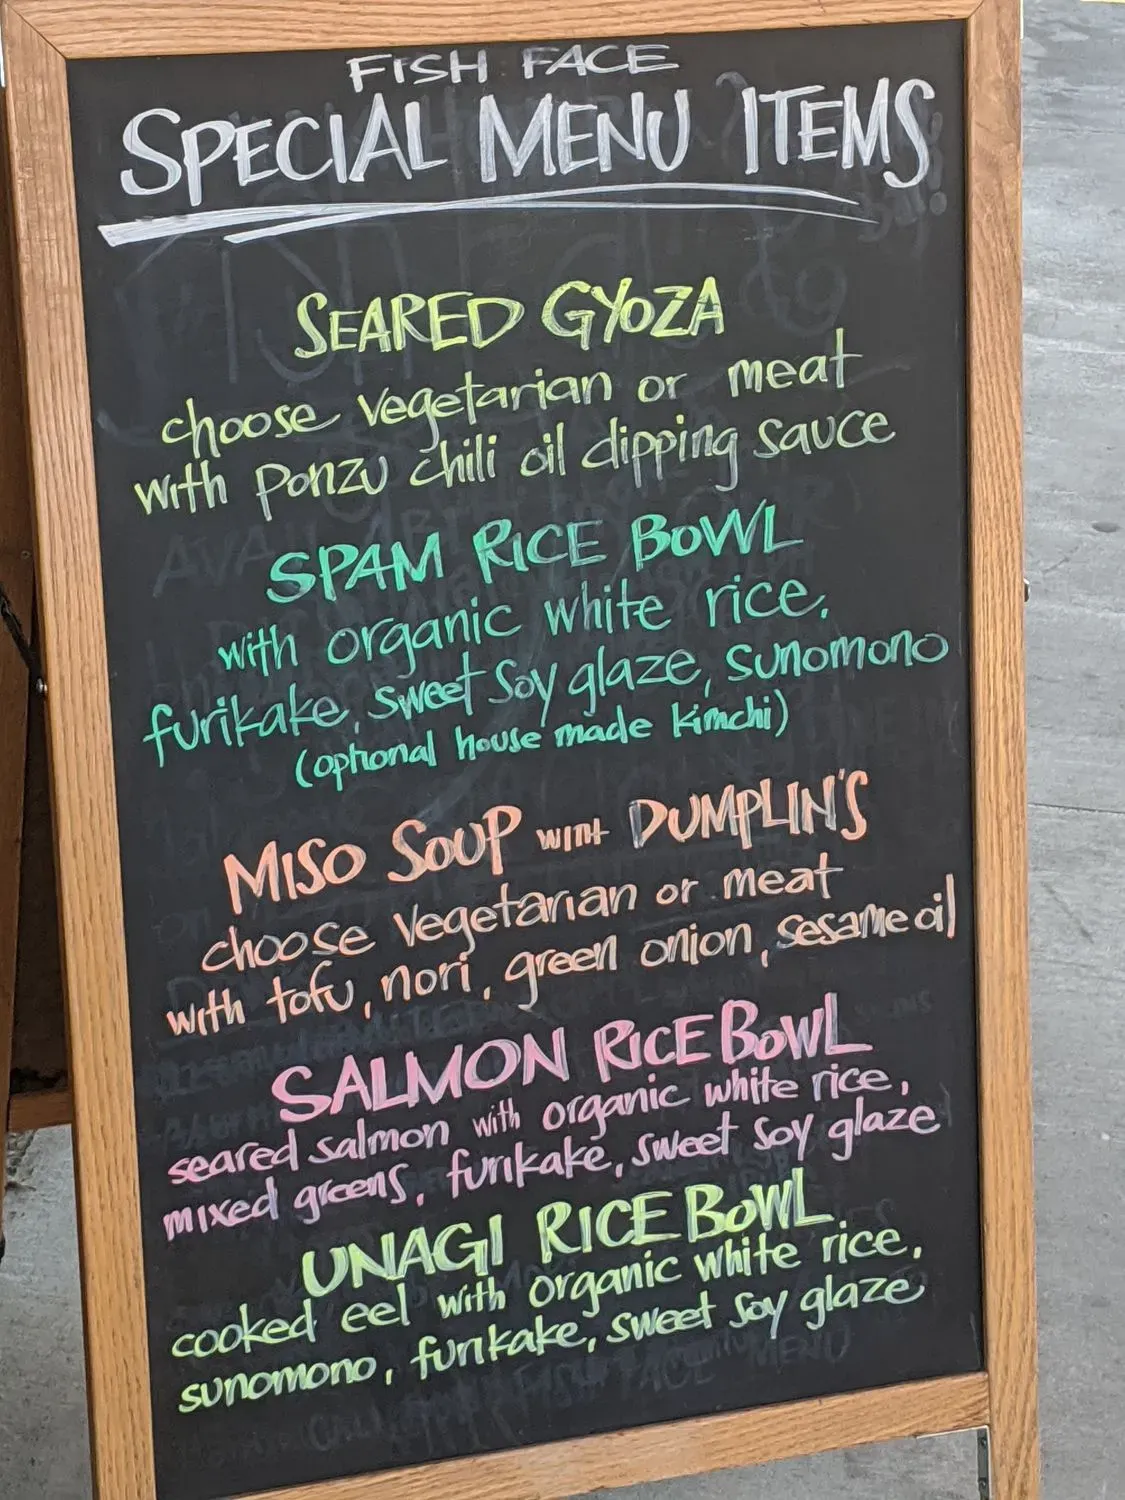 FISH FACE
SPECIAL MENU ITEMS
SEARED GYOZA
choose vegetarian or meat
with ponzu chili oil dipping sauce
SPAM RICE BOWL
with organic white rice,
furikake, sweet soy glaze, sunomono
(optional house made kimchi)
MISO SOUP WITH DUMPLIN'S
choose vegetarian or meat
with tofu, nori, green onion, sesame oil
SALMON RICE BOWL
seared salmon with organic white rice,
mixed greens, furikake, sweet soy glaze
UNAGI RICE BOWL
cooked eel with organic white rice,
sunomono, furikake, sweet soy glaze